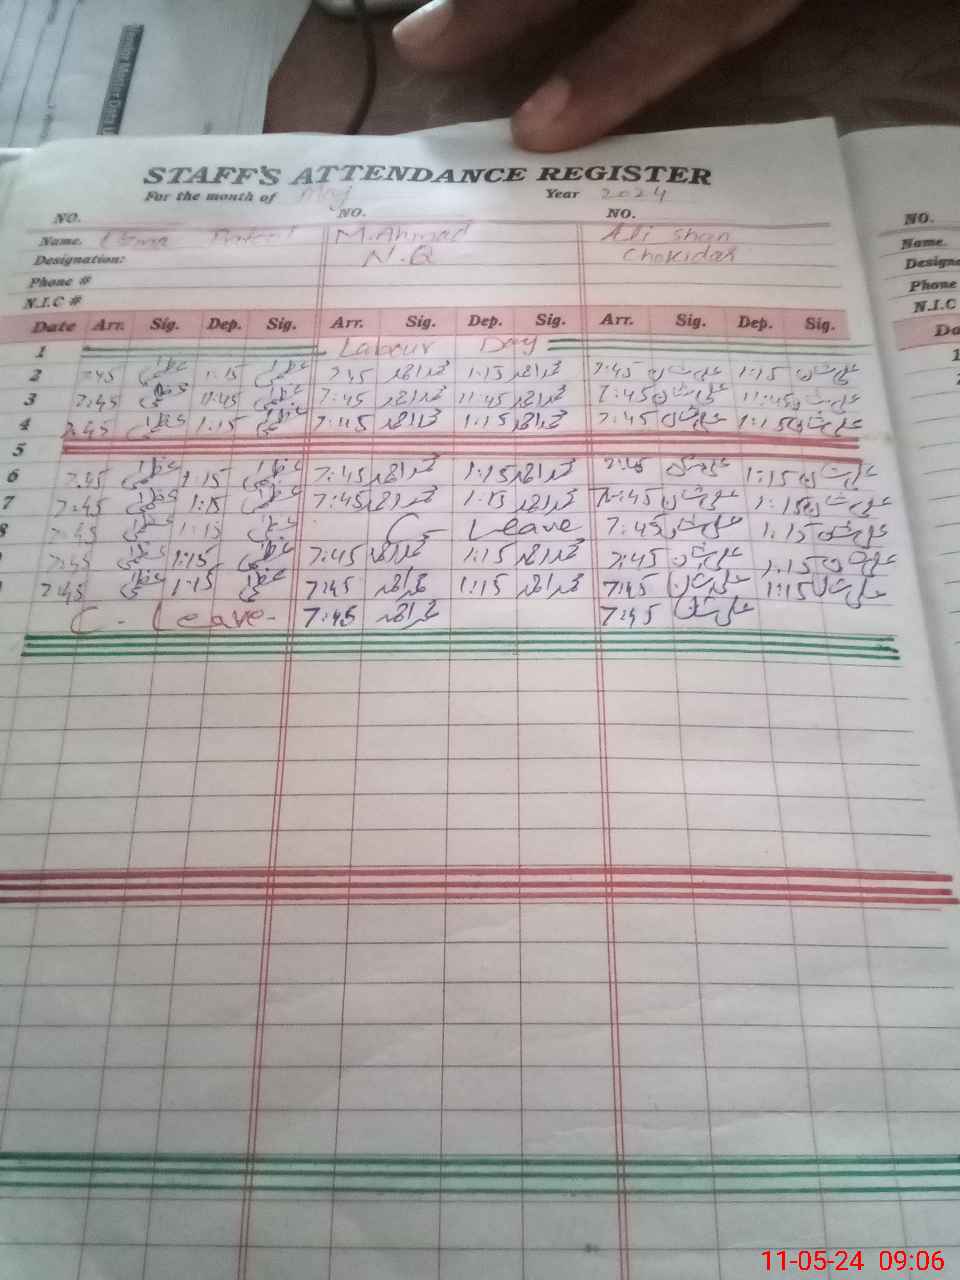 STAFF'S ATTENDANCE REGISTER
For the month of May Year 2024
NO. NO. NO. NO.
Name. M.Ahmad Ali Shan Name.
Designation: N.Q Chokidar
Phone # Phone
N.I.C # N.I.C
Date Arr. Sig. Dep. Sig. Arr. Sig. Dep. Sig. Arr. Sig. Dep. Sig.
1 Labour Day
2 7:45 عظمیٰ 1:15 عظمیٰ 7:45 محمد احمد 1:15 محمد احمد 7:45 علی شان 1:15 علی شان
3 7:45 عظمیٰ 11:45 عظمیٰ 7:45 محمد احمد 11:45 محمد احمد 7:45 علی شان 11:45 علی شان
4 7:45 عظمیٰ 1:15 عظمیٰ 7:45 محمد احمد 1:15 محمد احمد 7:45 علی شان 1:15 علی شان
5
6 7:45 عظمیٰ 1:15 عظمیٰ 7:45 محمد احمد 1:15 محمد احمد 7:45 علی شان 1:15 علی شان
7 7:45 عظمیٰ 1:15 عظمیٰ 7:45 محمد احمد 1:15 محمد احمد 7:45 علی شان 1:15 علی شان
8 7:45 عظمیٰ 1:15 عظمیٰ C- Leave 7:45 علی شان 1:15 علی شان
7:45 عظمیٰ 1:15 عظمیٰ 7:45 محمد احمد 1:15 محمد احمد 7:45 علی شان 1:15 علی شان
7:45 عظمیٰ 1:15 عظمیٰ 7:45 محمد احمد 1:15 محمد احمد 7:45 علی شان 1:15 علی شان
C - Leave - 7:45 محمد احمد 7:45 علی شان
11-05-24 09:06